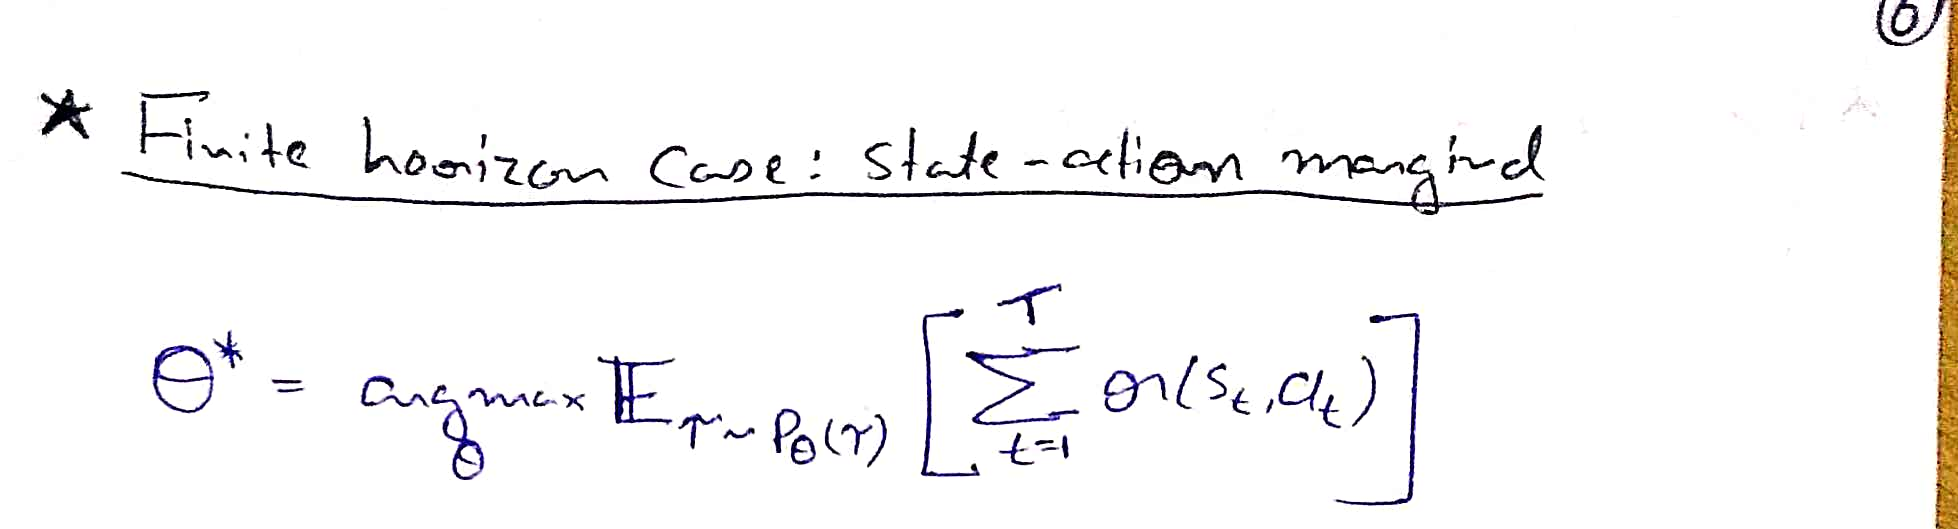 ⑥
* Finite horizon case: state-action marginal
θ* = argmax_θ 𝔼_{τ∼p_θ(τ)} [ ∑_{t=1}^{T} r(s_t, a_t) ]